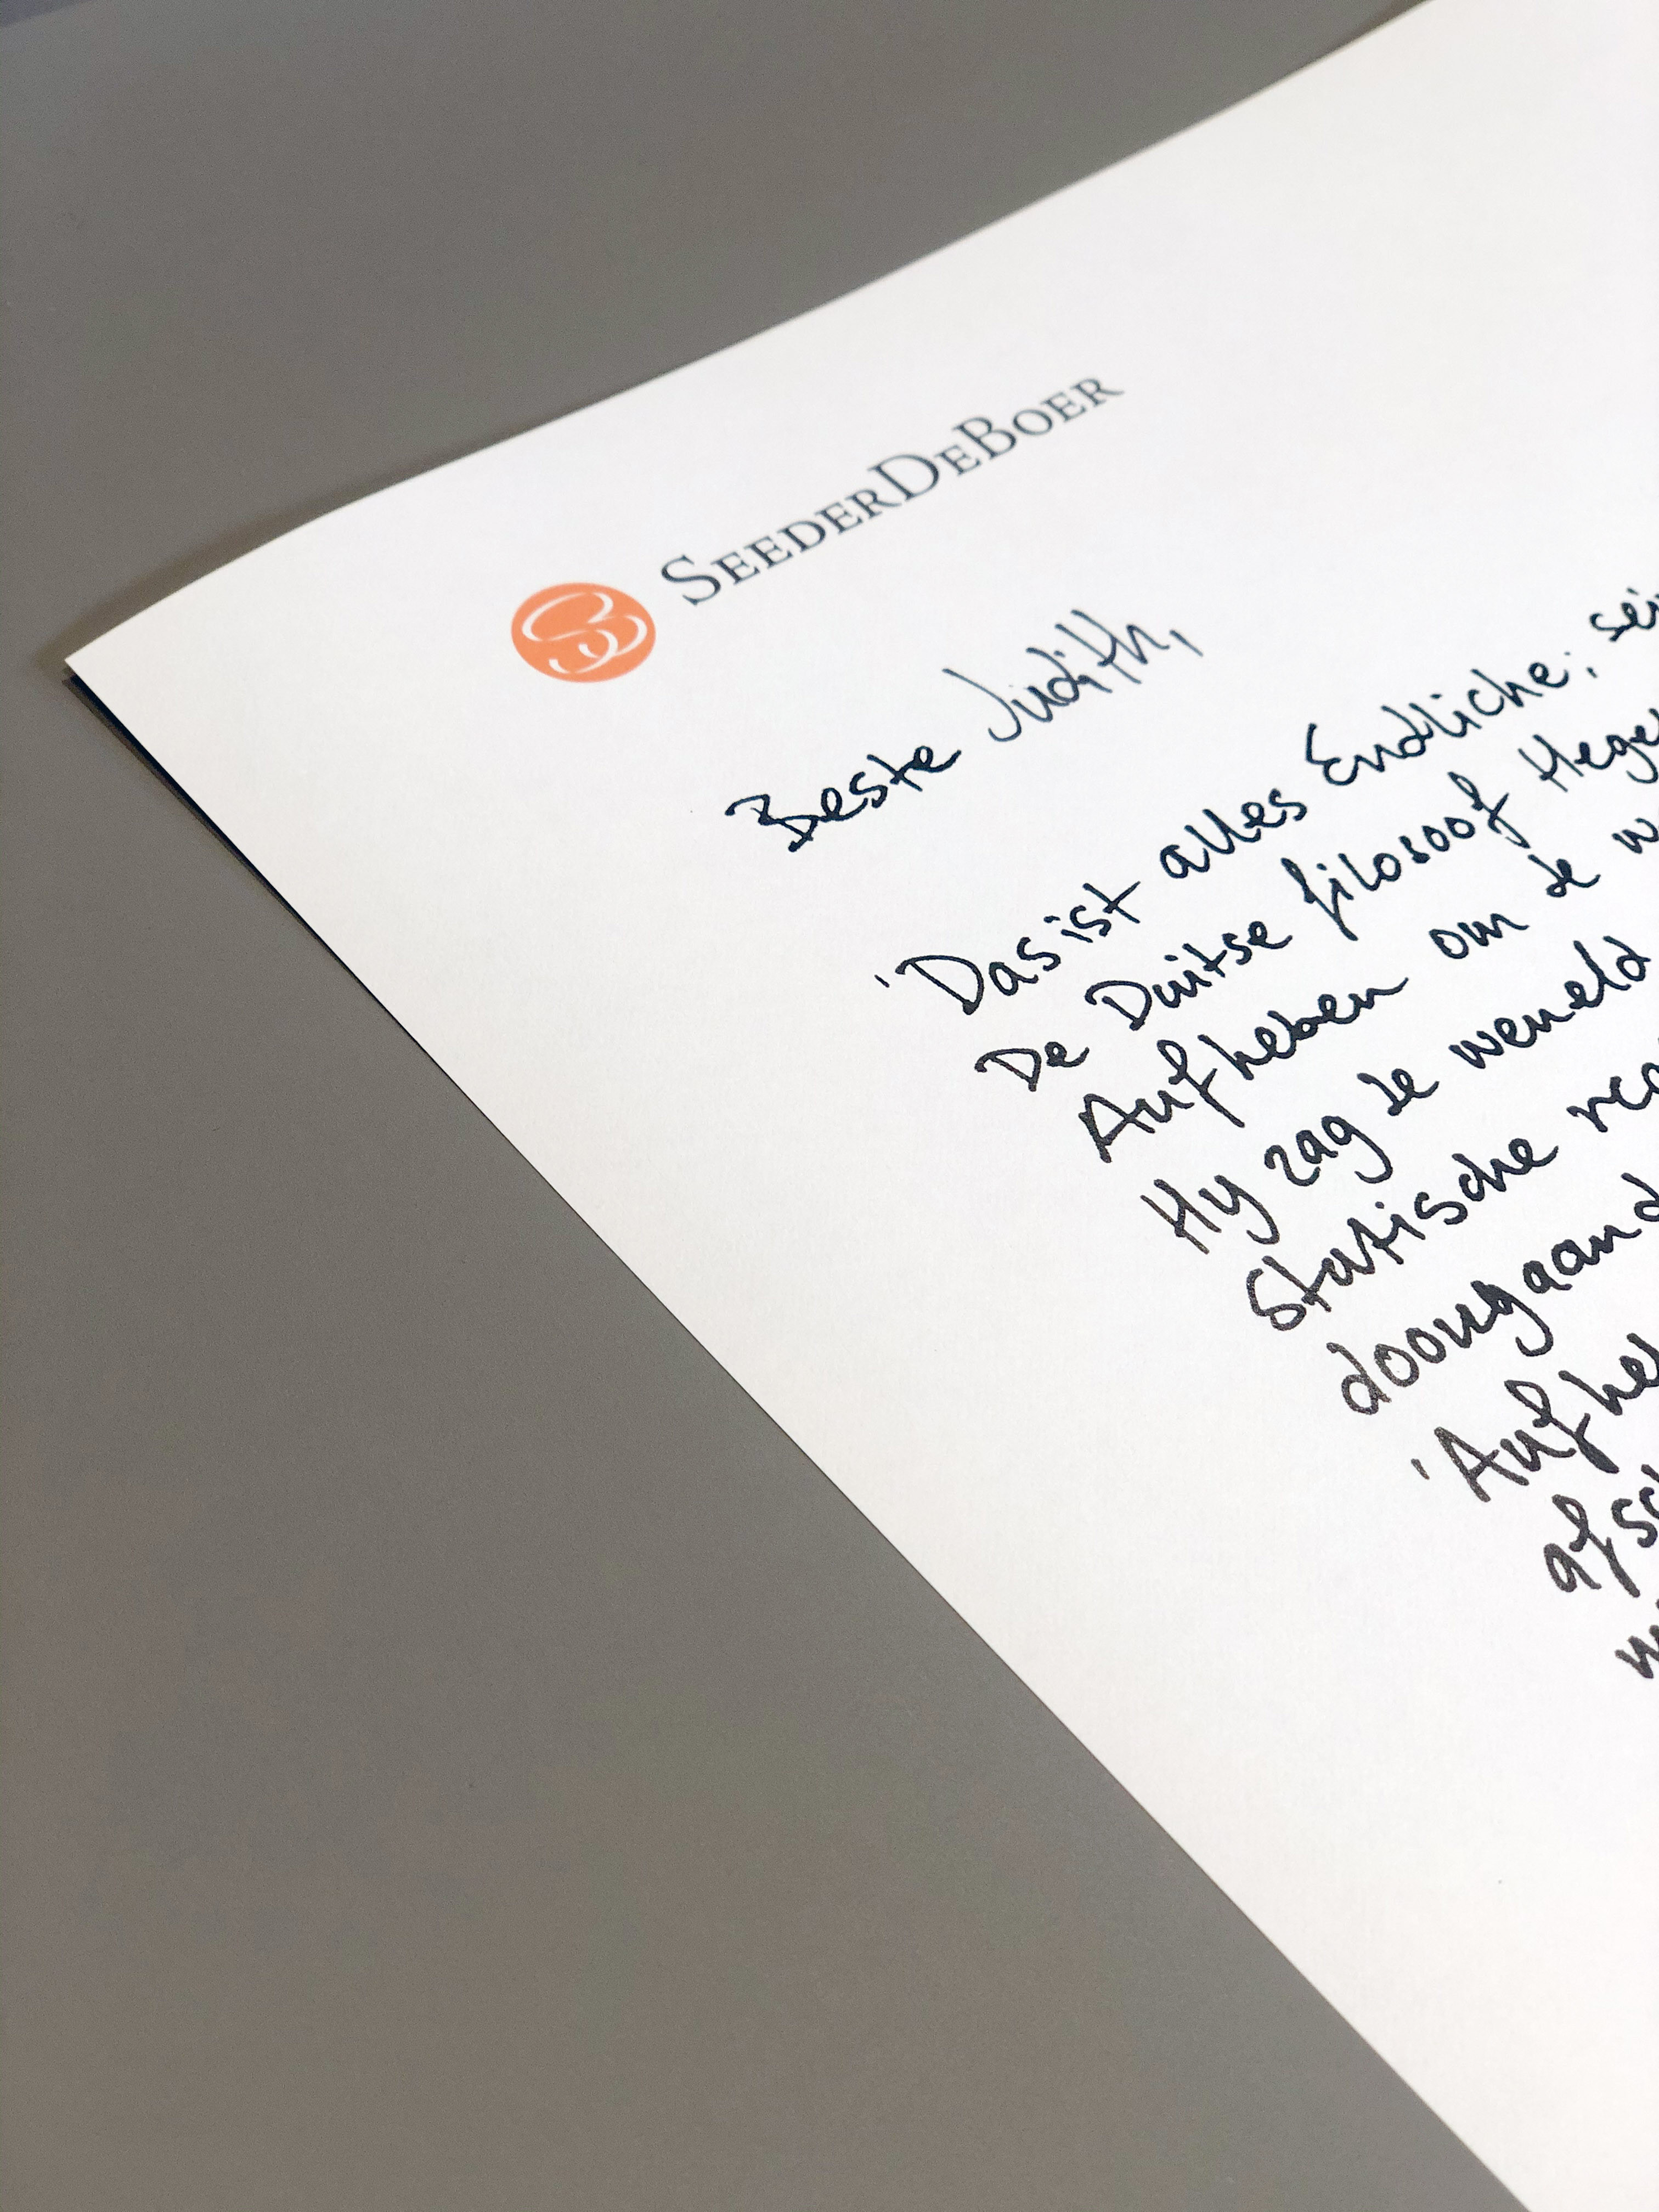 SEEDERDEBOER
Beste Judith,
'Das ist alles Endliche; sei
De Duitse filosoof Hege
Aufheben om de w
Hy zag de wereld
Statische rea
doorgaand
'Aufhe
afsc